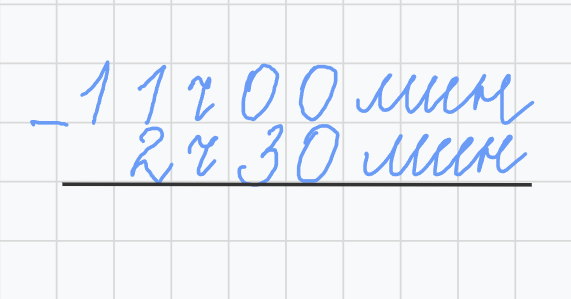 – 11 ч 00 мин
2 ч 30 мин